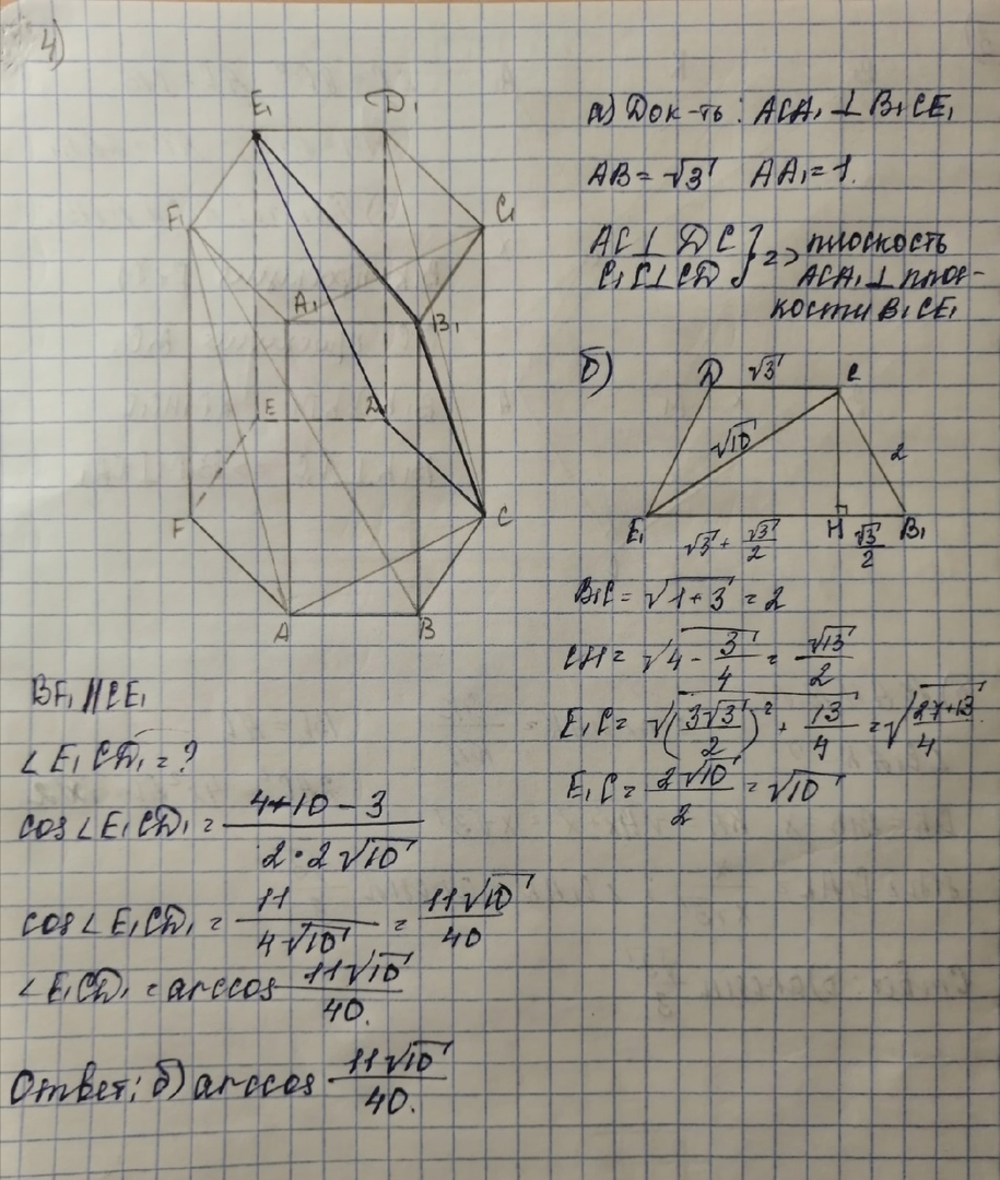 4)
E₁ D₁
F₁ C₁
A₁ B₁
E D
F C
A B
а) Док-ть: ACA₁ ⊥ B₁CE₁
AB = √3 AA₁ = 1.
AC ⊥ DC
C₁C ⊥ CD } => плоскость
ACA₁ ⊥ плос-
кости B₁CE₁
б)
D √3 C
√10 2
E₁ H B₁
√3 + √3/2 √3/2
B₁C = √(1+3) = 2
CH = √(4 - 3/4) = √13/2
E₁C = √((3√3/2)² + 13/4) = √((27+13)/4)
E₁C = 2√10/2 = √10
BF₁ || CE₁
∠E₁CD₁ = ?
cos∠E₁CD₁ = (4+10-3)/(2·2√10)
cos∠E₁CD₁ = 11/(4√10) = 11√10/40
∠E₁CD₁ = arccos 11√10/40.
Ответ: б) arccos 11√10/40.